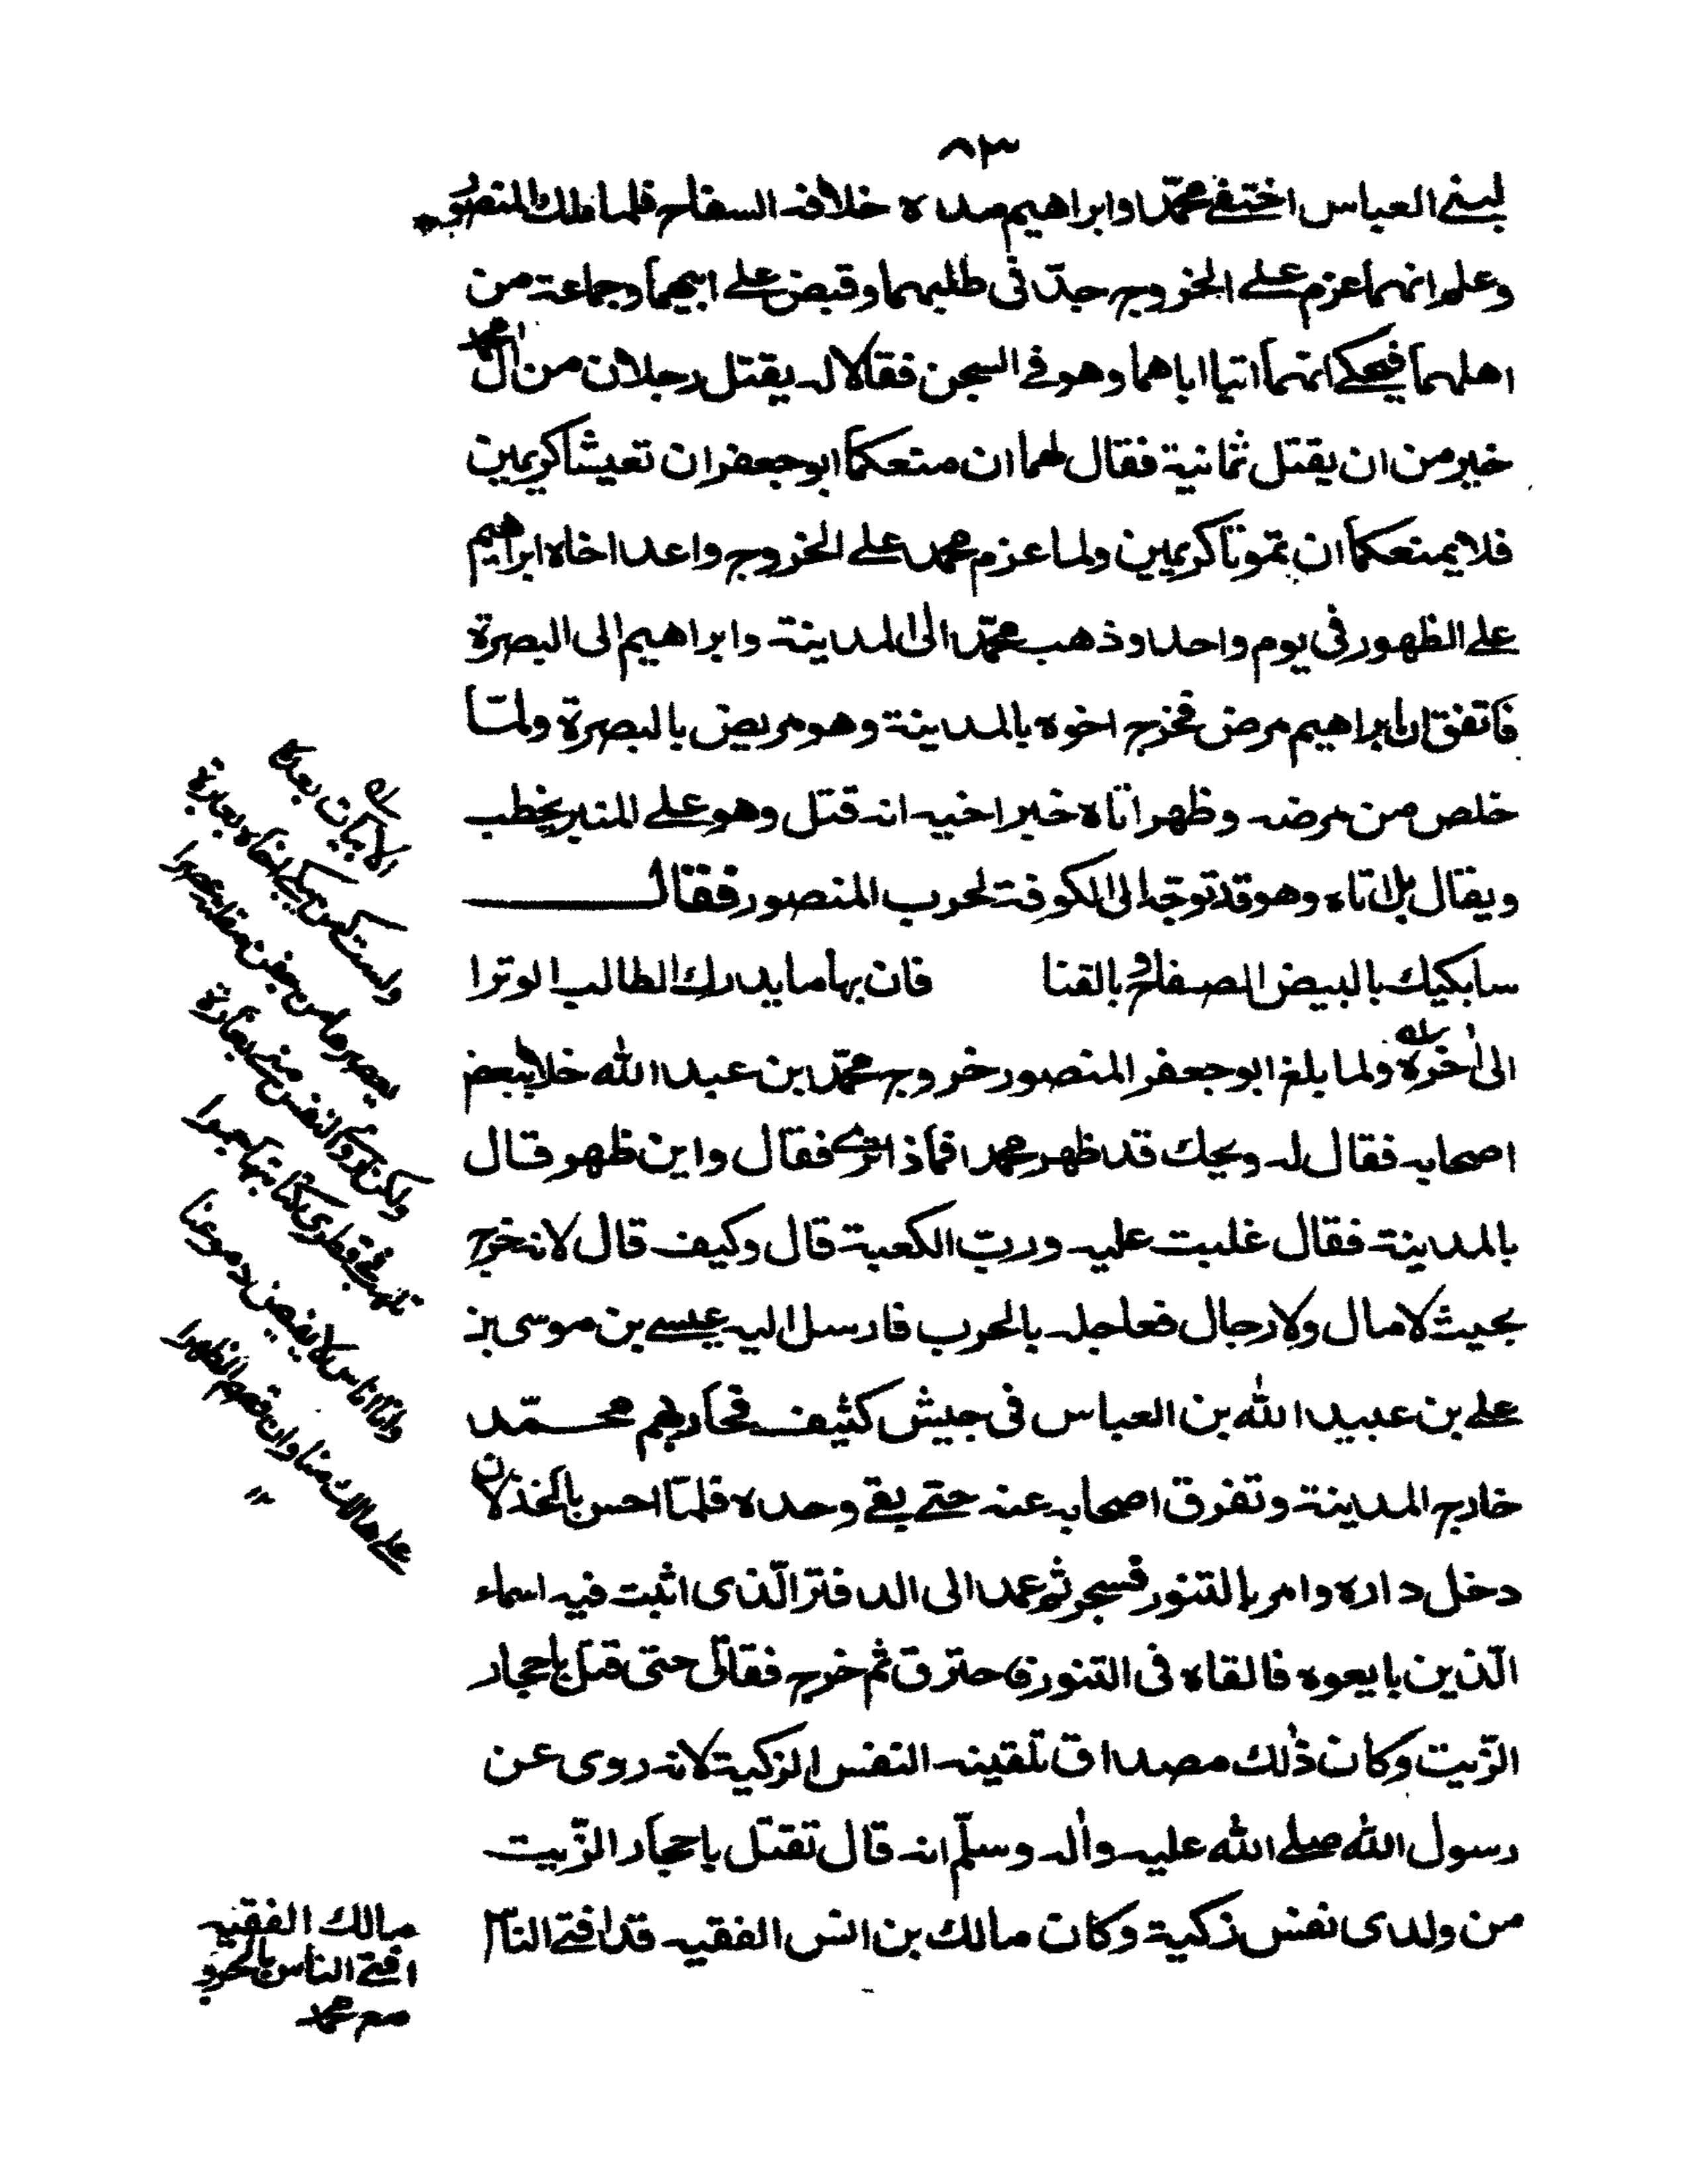 ٨٣
لبني العباس اختفى محمّد وابراهيم مدة خلافة السفاح فلما ملك المنصور
وعلم انهما عزم على الخروج جدّ في طلبهما وقبض على ابيهما وجماعة من
اهلهما فيحكى انهما اتيا اباهما وهو في السجن فقالا له يقتل رجلان من آل محمد
خير من ان يقتل ثمانية فقال لهما ان منعكما ابوجعفر ان تعيشا كريمين
فلا يمنعكما ان تموتا كريمين ولما عزم محمد على الخروج واعد اخاه ابراهيم
على الظهور في يوم واحد وذهب محمّد الى المدينة وابراهيم الى البصرة
فاتفق ان ابراهيم مرض فخرج اخوه بالمدينة وهو مريض بالبصرة ولمّا
خلص من مرضه وظهر اتاه خبر اخيه انه قتل وهو على المنبر يخطب
ويقال بل اتاه وهو قد توجّه الى الكوفة لحرب المنصور فقال
سابكيك بالبيض الصفاح وبالقنا فان بها ما يدرك الطالب الوترا
الى اخره ولما بلغ ابو جعفر المنصور خروج محمّد ابن عبد الله خلا ببعض
اصحابه فقال له ويحك قد ظهر محمد فماذا ترى فقال واين ظهر قال
بالمدينة فقال غلبت عليه وربّ الكعبة قال وكيف قال لانه خرج
بحيث لا مال ولا رجال فعاجله بالحرب فارسل اليه عيسى بن موسى بن
على بن عبيد الله بن العباس في جيش كثيف فحاربهم محمّد
خارج المدينة وتفرق اصحابه عنه حتى بقى وحده فلمّا احس بالخذلان
دخل داره وامر بالتنور فسجر ثم عمد الى الدفتر الّذى اثبت فيه اسماء
الّذين بايعوه فالقاه في التنور فاحترق ثم خرج فقاتل حتى قتل باحجار
الزّيت وكان ذلك مصداق تلقينه النفس الزكية لانه روى عن
رسول الله صلى الله عليه واله وسلّم انه قال تقتل باحجار الزّيت
من ولدى نفس زكية وكان مالك بن انس الفقيه قد افتى الناس
الابيات بعده
ولست كمن يبكى اخاه بعبرة
يعصرها من جفن مقلته عصرا
ولكن النفس منى بغارة
تلهب في قطرى كتائبها جمرا
وانا اناس لا يفيض دموعنا
على هالك منا وان قصم الظهرا
مالك الفقيه
افتى الناس بالخروج
مع محمد